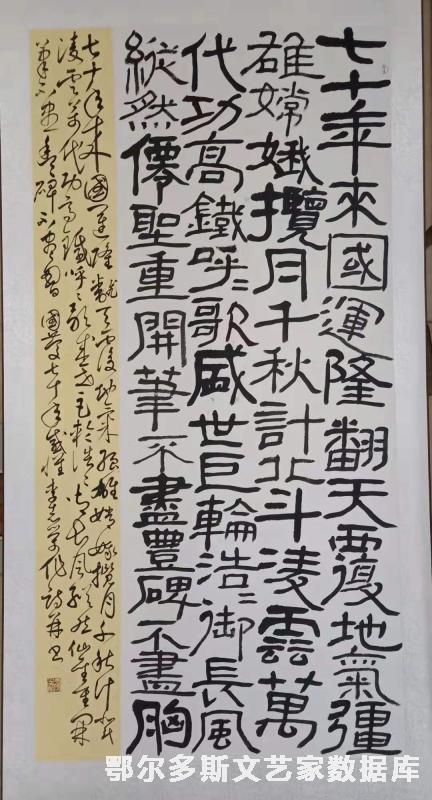 七十年來國運隆翻天覆地氣彊
雄嫦娥攬月千秋計北斗凌雲萬
代功高鐵呼〻歌盛世巨輪浩〻御長風
縱然僊聖重開筆不盡豐碑不盡胸
七十年来國運隆翻天覆地氣强雄嫦娥攬月千秋计北斗
凌雲万代功高鐵呼〻歌盛世巨輪浩〻御長風縱然仙聖重開
筆不盡豐碑不盡胸 國慶七十年感懷 作詩并书
鄂尔多斯文艺家数据库